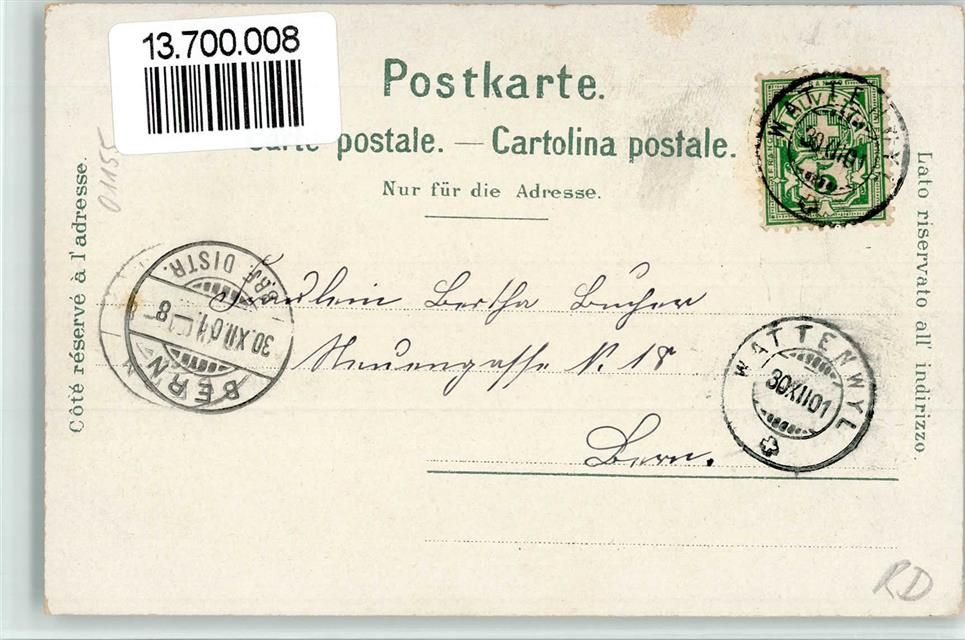 13.700.008
Postkarte.
Carte postale. — Cartolina postale.
Nur für die Adresse.
Côté réservé à l'adresse.
Lato riservato all' indirizzo.
01155
5
30 XII 01
BERN
30.XII.01. – 8
BRF. DISTR.
Fräulein Bertha Bucher
Neuengasse N. 18
Bern.
WATTENWYL
30 XII 01
RD